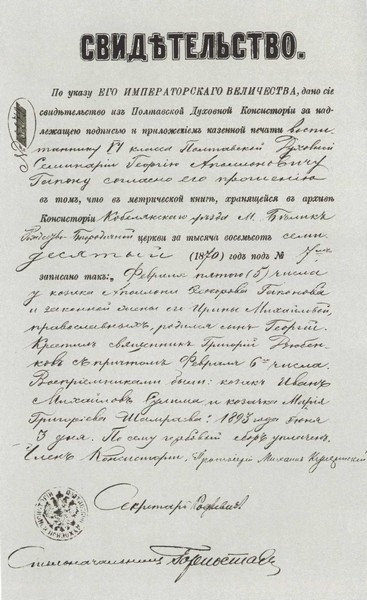 СВИДѢТЕЛЬСТВО.
По указу ЕГО ИМПЕРАТОРСКАГО ВЕЛИЧЕСТВА, дано сіе
свидѣтельство изъ Полтавской Духовной Консисторіи за над-
лежащею подписью и приложеніемъ казенной печати воспи-
таннику VI класса Полтавской Духовной
Семинаріи Георгію Аполлоновичу
Гапону согласно его прошенію
въ томъ, что въ метрической книгѣ, хранящейся въ архивѣ
Консисторіи Кобелякскаго уѣзда М. Бѣликъ
Рождество Богородичной церкви за тысяча восемьсотъ семи
десятый (1870) годъ подъ №
записано такъ: Февраля пятого (5) числа
у козака Аполлона Ѳедорова Гапонова
и законной жены его Ирины Михайловой,
православныхъ, родился сынъ Георгій.
Крестилъ священникъ Григорій
съ причтомъ Февраля 6го числа.
Воспріемниками были: козакъ Иванъ
Михайловъ и козачка Марія
Григоріева 1893 года Іюня
3 дня. По сему гербовый сборъ уплаченъ.
Членъ Консисторіи, Протоіерей Михаилъ
Секретарь
Столоначальникъ